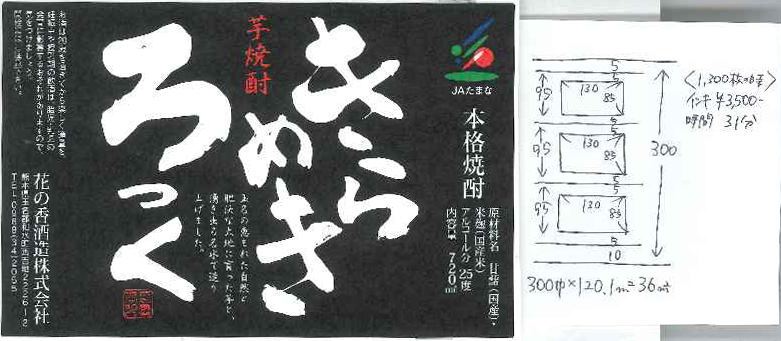 きらめき
ろっく
芋焼酎
JAたまな
本格焼酎
原材料名 甘藷(国産)・
米麹(国産米)
アルコール分 25度
内容量 720ml
玉名の恵まれた自然と
肥沃な大地に育った芋と、
湧き出る名水で造り
上げました。
お酒は20歳を過ぎてから楽しく適量を。
妊娠中や授乳期の飲酒は、胎児・乳児の
発育に影響するおそれがありますので、
気をつけましょう。
花の香酒造株式会社
熊本県玉名郡和水町西吉地2226-2
TEL・0968(34)2055
〈1,300枚の時〉
インキ ¥3,500-
時間 31分
5
5
95
130
85
5
5
95
130
85
5
5
95
130
85
5
10
300
300巾×120.1m=36㎡